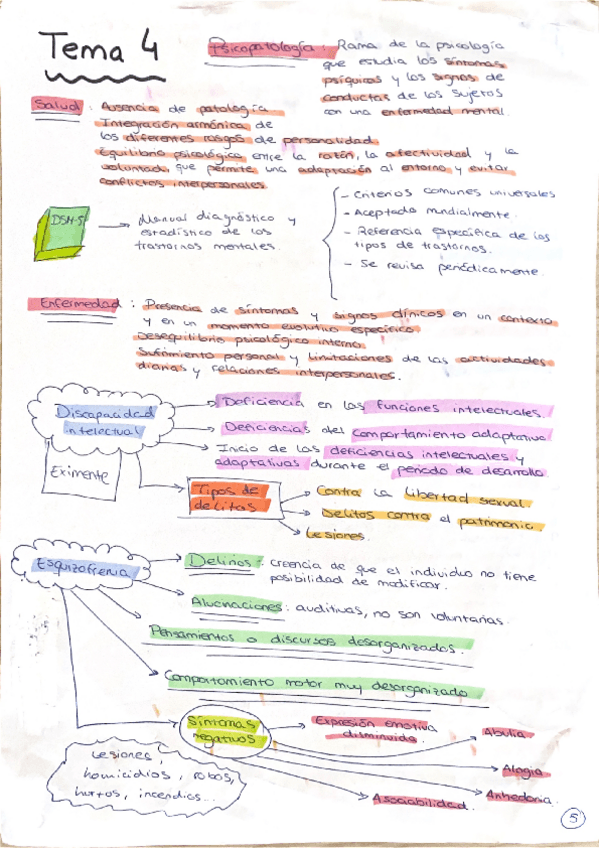 Tema 4
Psicopatología: Rama de la psicología
que estudia los síntomas
psíquicos y los signos de
conductas de los sujetos
con una enfermedad mental.
Salud: Ausencia de patología
Integración armónica de
los diferentes rasgos de personalidad.
Equilibrio psicológico entre la razón, la afectividad y la
voluntad que permite una adaptación al entorno y evitar
conflictos interpersonales.
DSM-5
Manual diagnóstico y
estadístico de los
trastornos mentales.
- Criterios comunes universales
- Aceptado mundialmente.
- Referencia específica de los
tipos de trastornos.
- Se revisa periódicamente.
Enfermedad: Presencia de síntomas y signos clínicos en un contexto
y en un momento evolutivo específico.
Desequilibrio psicológico interno.
Sufrimiento personal y limitaciones de las actividades
diarias y relaciones interpersonales.
Discapacidad
intelectual
Eximente
Deficiencia en las funciones intelectuales.
Deficiencias del comportamiento adaptativo
Inicio de las deficiencias intelectuales y
adaptativas durante el periodo de desarrollo
Tipos de
delitos
Contra la libertad sexual
Delitos contra el patrimonio.
Lesiones.
Esquizofrenia
Delirios: creencia de que el individuo no tiene
posibilidad de modificar.
Alucinaciones: auditivas, no son voluntarias.
Pensamientos o discursos desorganizados.
Comportamiento motor muy desorganizado
Síntomas
negativos
Expresión emotiva
disminuida.
Abulia
Alogia
Anhedonia.
Asociabilidad.
Lesiones,
homicidios, robos,
hurtos, incendios...
5